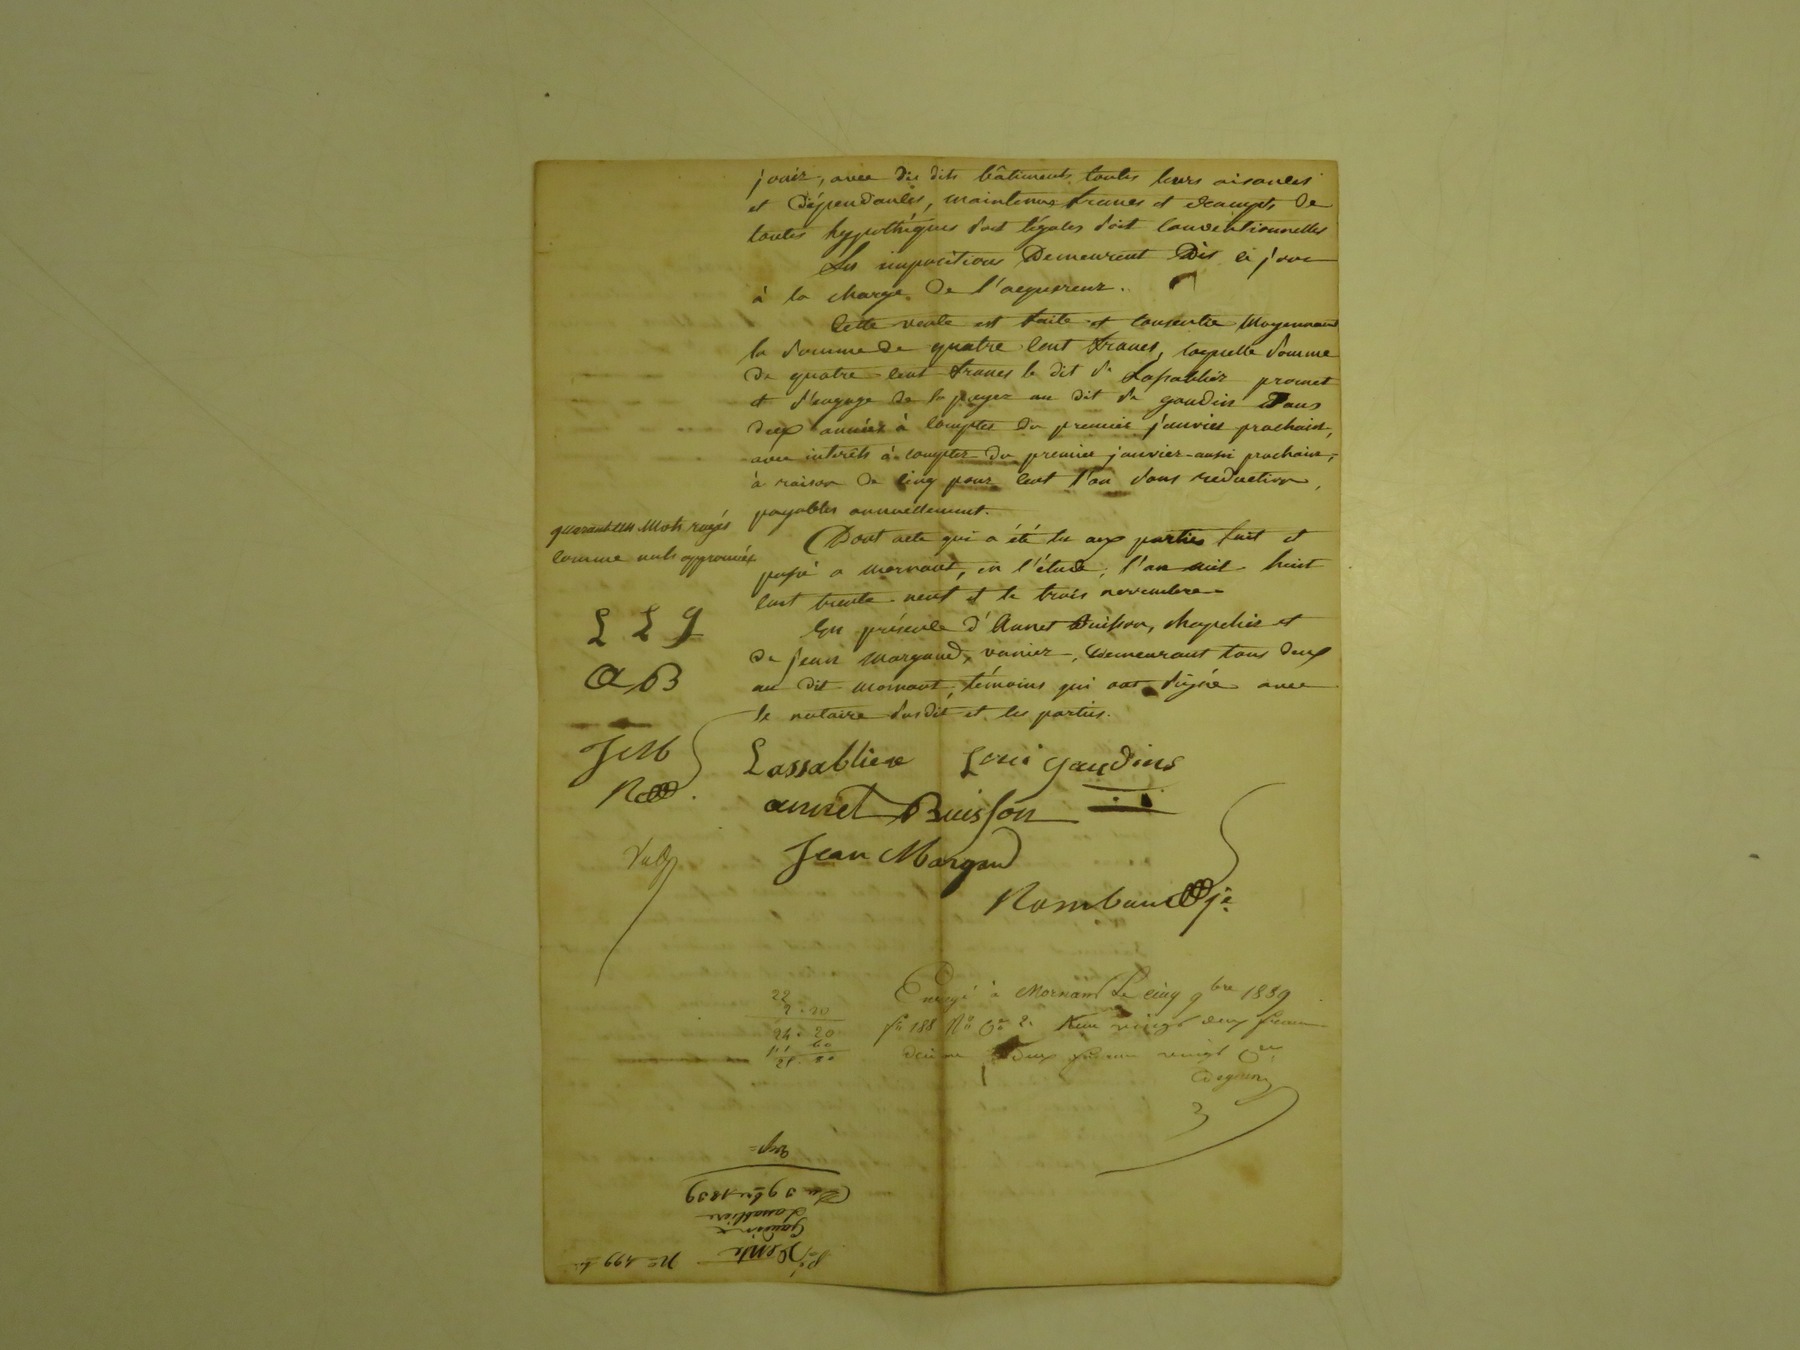 jouir, avec dis dits bâtiments toutes leurs aisances
et dépendances, maintenus francs et exempts de
toutes hyppothèques soit légales soit conventionnelles
Les impositions Demeurent Dès ce jour
à la charge de l'acquereur.
Cette vente est faite et consentie Moyennant
la somme de quatre cent francs, laquelle somme
de quatre cent francs le dit Sr Lassablier promet
et s'engage de la payer au dit Sr gaudin Dans
deux années à compter du premier janvier prochain,
avec intérêts à compter du premier janvier aussi prochain,
à raison de cinq pour cent l'an sans reduction,
payables annuellement.
quarante un Mots rayés
comme nuls approuvés
Dont acte qui a été lu aux parties fait et
passé a mornant, en l'étude, l'an mil huit
cent trente neuf et le trois novembre
En présence d'Annet Buisson, chapelier et
de jean margaud, vanier, Demeurant tous deux
au dit mornant, témoins qui ont signé avec
le notaire susdit et les parties.
L L g
AB
JeM
R
Lassabliere Loui gaudins
annet Buisson
Jean Margand
Rombau je
22
2.20
24.20
à Mornant Le cinq 9bre 1839
fo 188 Ro Ce 2. vingt deux francs
décime deux francs vingt Ce
Du 3 9bre 1839
Lassabliere
Gaudin
Vente
No 499